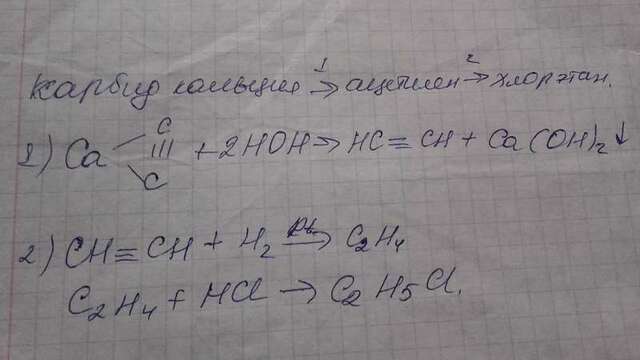 Карбид кальция →¹ ацетилен →² хлорэтан.
1) Ca C ||| C + 2HOH → HC ≡ CH + Ca(OH)₂↓
2) CH ≡ CH + H₂ → C₂H₄
C₂H₄ + HCl → C₂H₅Cl.